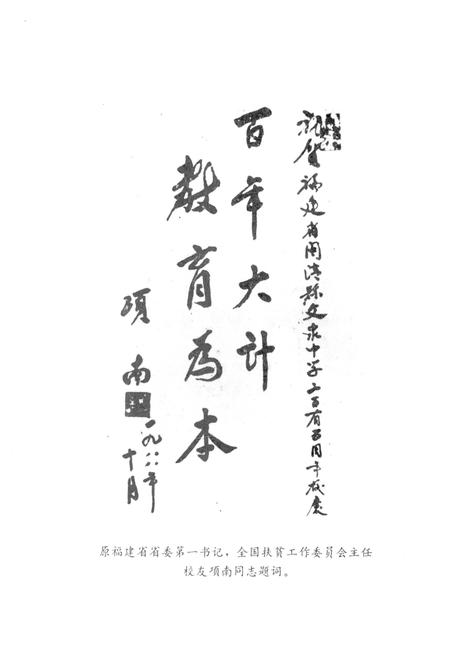 祝贺福建省闽清县文泉中学二百有五周年校庆
百年大计
教育为本
项南
一九八八年
十月
原福建省省委第一书记，全国扶贫工作委员会主任
校友项南同志题词。